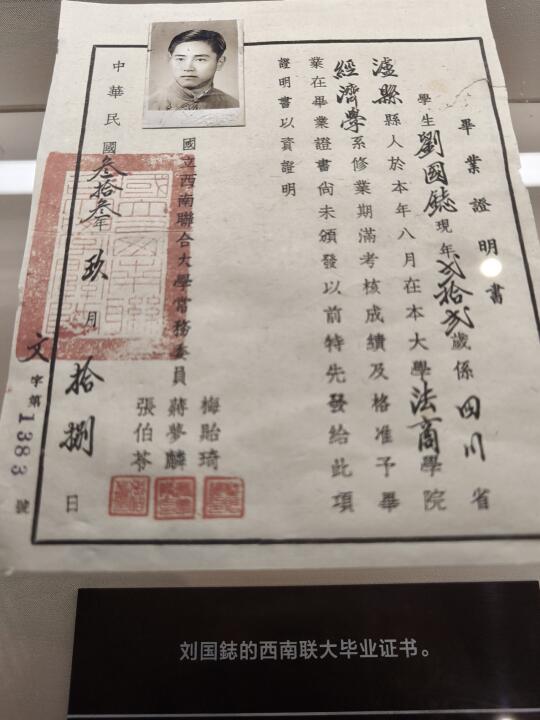 畢業證明書
學生劉國鋕現年貳拾貳歲係四川省
瀘縣縣人於本年八月在本大學法商學院
經濟學系修業期滿考核成績及格准予畢
業在畢業證書尚未頒發以前特先發給此項
證明書以資證明
國立西南聯合大學常務委員
梅貽琦
蔣夢麟
張伯苓
中華民國叁拾叁年玖月拾捌日
文字第1383號
刘国鋕的西南联大毕业证书。